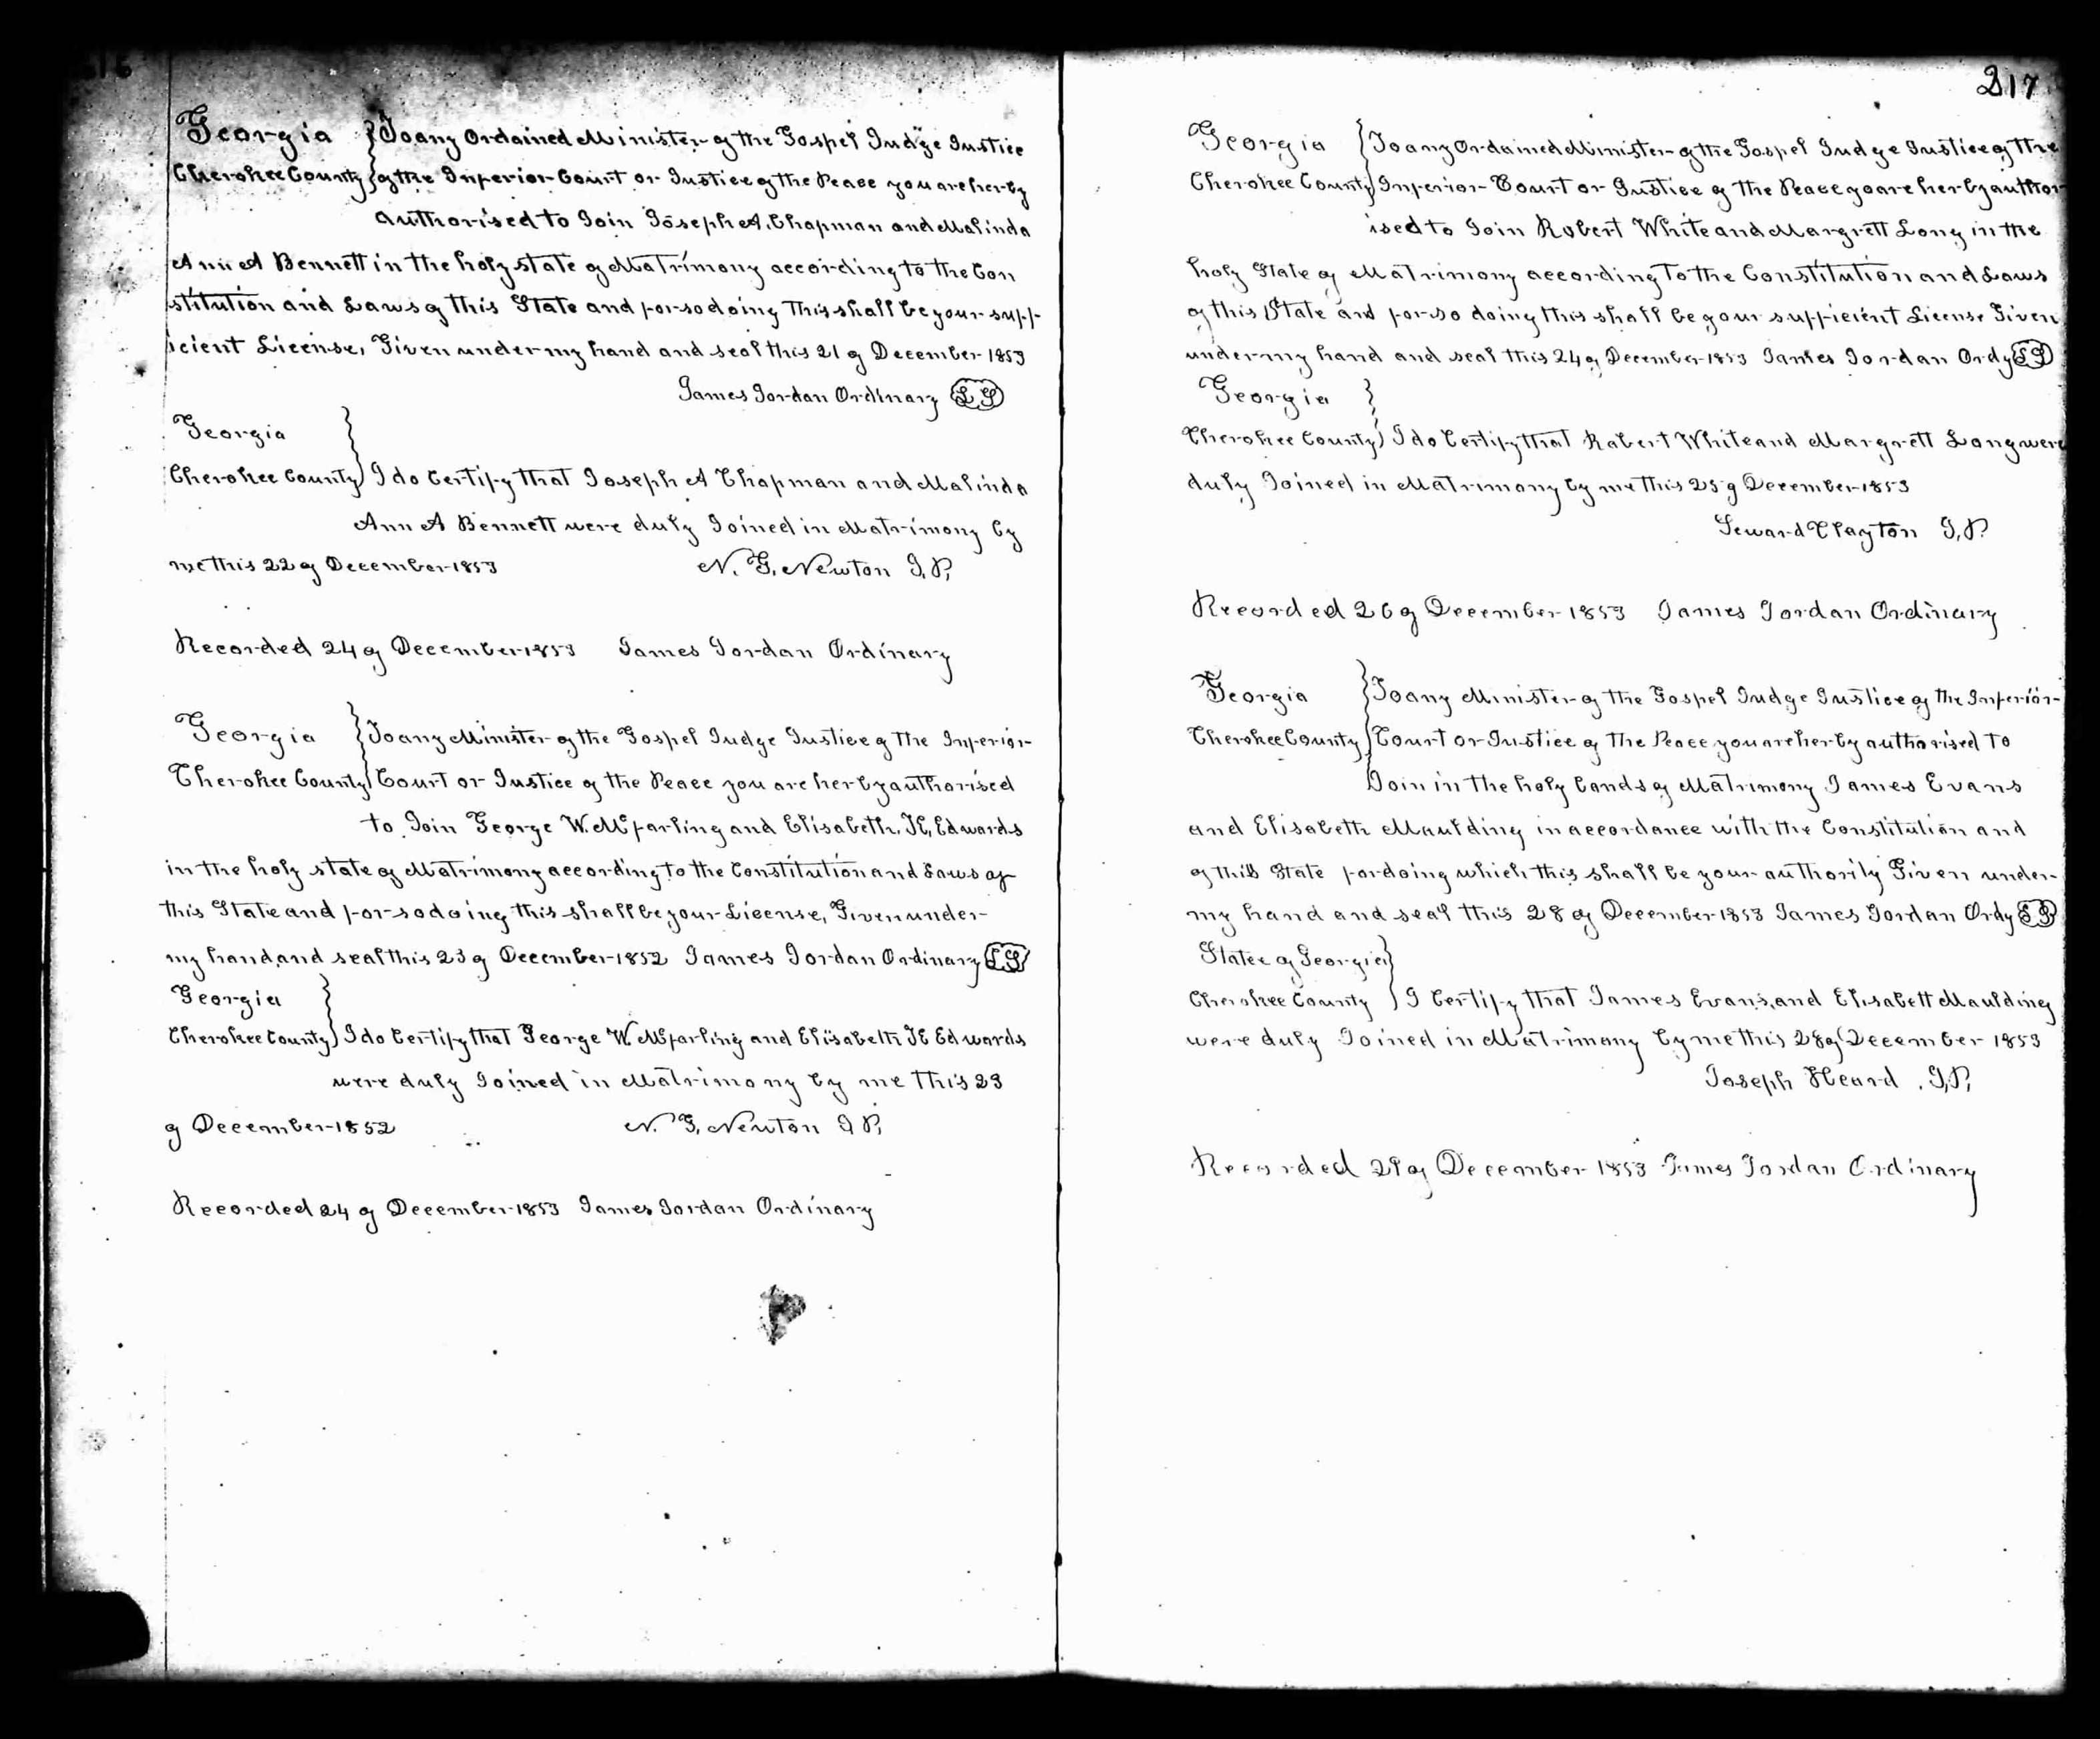 216
Georgia } To any Ordained Minister of the Gospel Judge Justice
Cherokee County } of the Inferior Court or Justice of the Peace you are herby
authorised to Join Joseph A. Chapman and Malinda
Ann A Bennett in the holy state of Matrimony according to the Con
stitution and Laws of this State and for so doing this shall be your suff-
icient License, Given under my hand and seal this 21 of December 1853
James Jordan Ordinary LS
Georgia }
Cherokee County } I do Certify that Joseph A Chapman and Malinda
Ann A Bennett were duly Joined in Matrimony by
me this 22 of December 1853 N. G. Newton J.P.
Recorded 24 of December 1853 James Jordan Ordinary
Georgia } To any Minister of the Gospel Judge Justice of the Inferior
Cherokee County } Court or Justice of the Peace you are herby authorised
to Join George W. McFarling and Elisabeth. H. Edwards
in the holy state of Matrimony according to the Constitution and Laws of
this State and for so doing this shall be your License, Given under
my hand and seal this 23 of December 1852 James Jordan Ordinary LS
Georgia }
Cherokee County } I do Certify that George W McFarling and Elisabeth H Edwards
were duly Joined in Matrimony by me this 23
of December 1852 N. G. Newton J P.
Recorded 24 of December 1853 James Jordan Ordinary
217
Georgia } To any Ordained Minister of the Gospel Judge Justice of the
Cherokee County } Inferior Court or Justice of the Peace yoare herby author
ised to Join Robert White and Margrett Long in the
holy State of Matrimony according to the Constitution and Laws
of this State and for so doing this shall be your sufficient License Given
under my hand and seal this 24 of December 1853 James Jordan Ordy LS
Georgia }
Cherokee County } I do Certify that Robert White and Margrett Long were
duly Joined in Matrimony by me this 25 of December 1853
Seward Clayton J.P.
Recorded 26 of December 1853 James Jordan Ordinary
Georgia } To any Minister of the Gospel Judge Justice of the Inferior
Cherokee County } Court or Justice of the Peace you are herby authorised to
Join in the holy bands of Matrimony James Evans
and Elisabeth Maulding in accordance with the Constitution and
of this State for doing which this shall be your authority Given under
my hand and seal this 28 of December 1853 James Jordan Ordy LS
State of Georgia }
Cherokee County } I Certify that James Evans, and Elisabett Maulding
were duly Joined in Matrimony by me this 28 of December 1853
Joseph Heard . J.P.
Recorded 29 of December 1853 James Jordan Ordinary